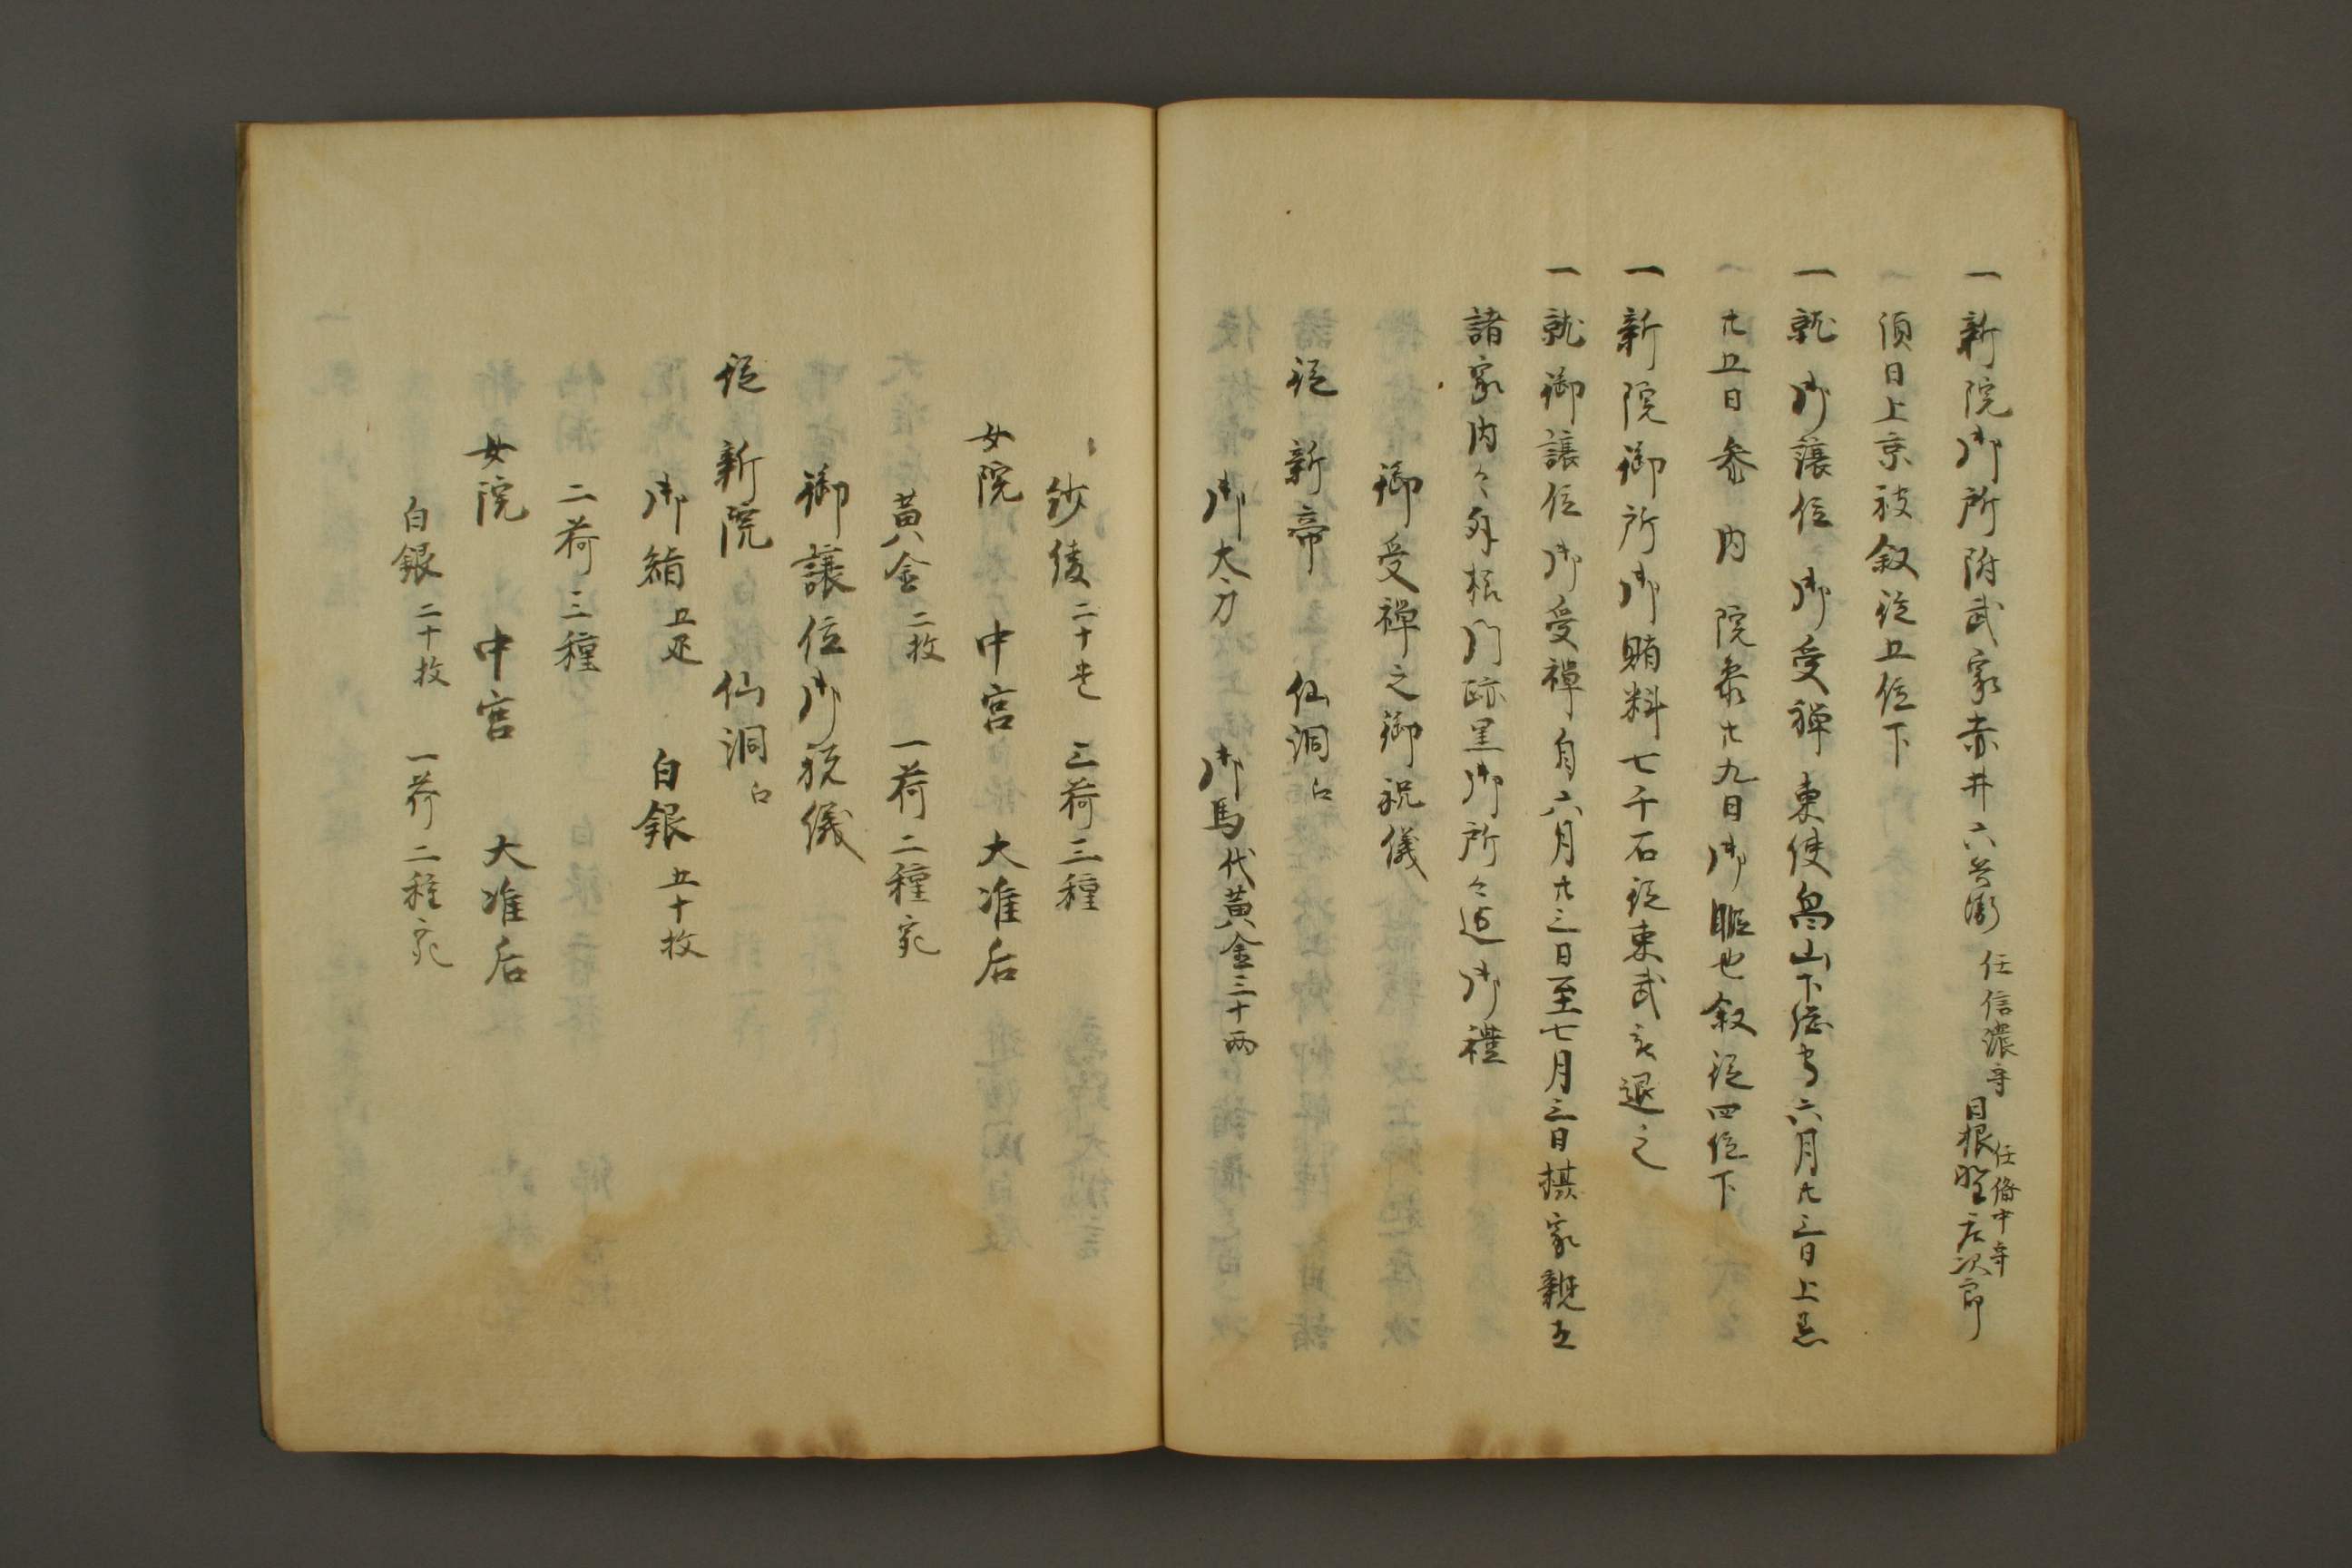 一新院御所附武家赤井六兵衛任信濃守日根野左次郎任備中守
須日上京被叙従五位下
一就御譲位御受禅東使畠山下総守六月廿三日上京
廿五日参内院参廿九日御暇也叙従四位下
一新院御所御賄料七千石従東武被進之
一就御譲位御受禅自六月廿三日至七月三日摂家親王
諸家内々外様門跡里御所々近御禮
御受禅之御祝儀
従新帝　仙洞江
御太刀　御馬代黄金三十両
紗綾二十巻　三荷三種
女院　中宮　大准后
黄金二枚　一荷二種宛
御譲位御祝儀
従新院　仙洞江
御絹五疋　白銀五十枚
二荷三種
女院　中宮　大准后
白銀二十枚　一荷二種宛